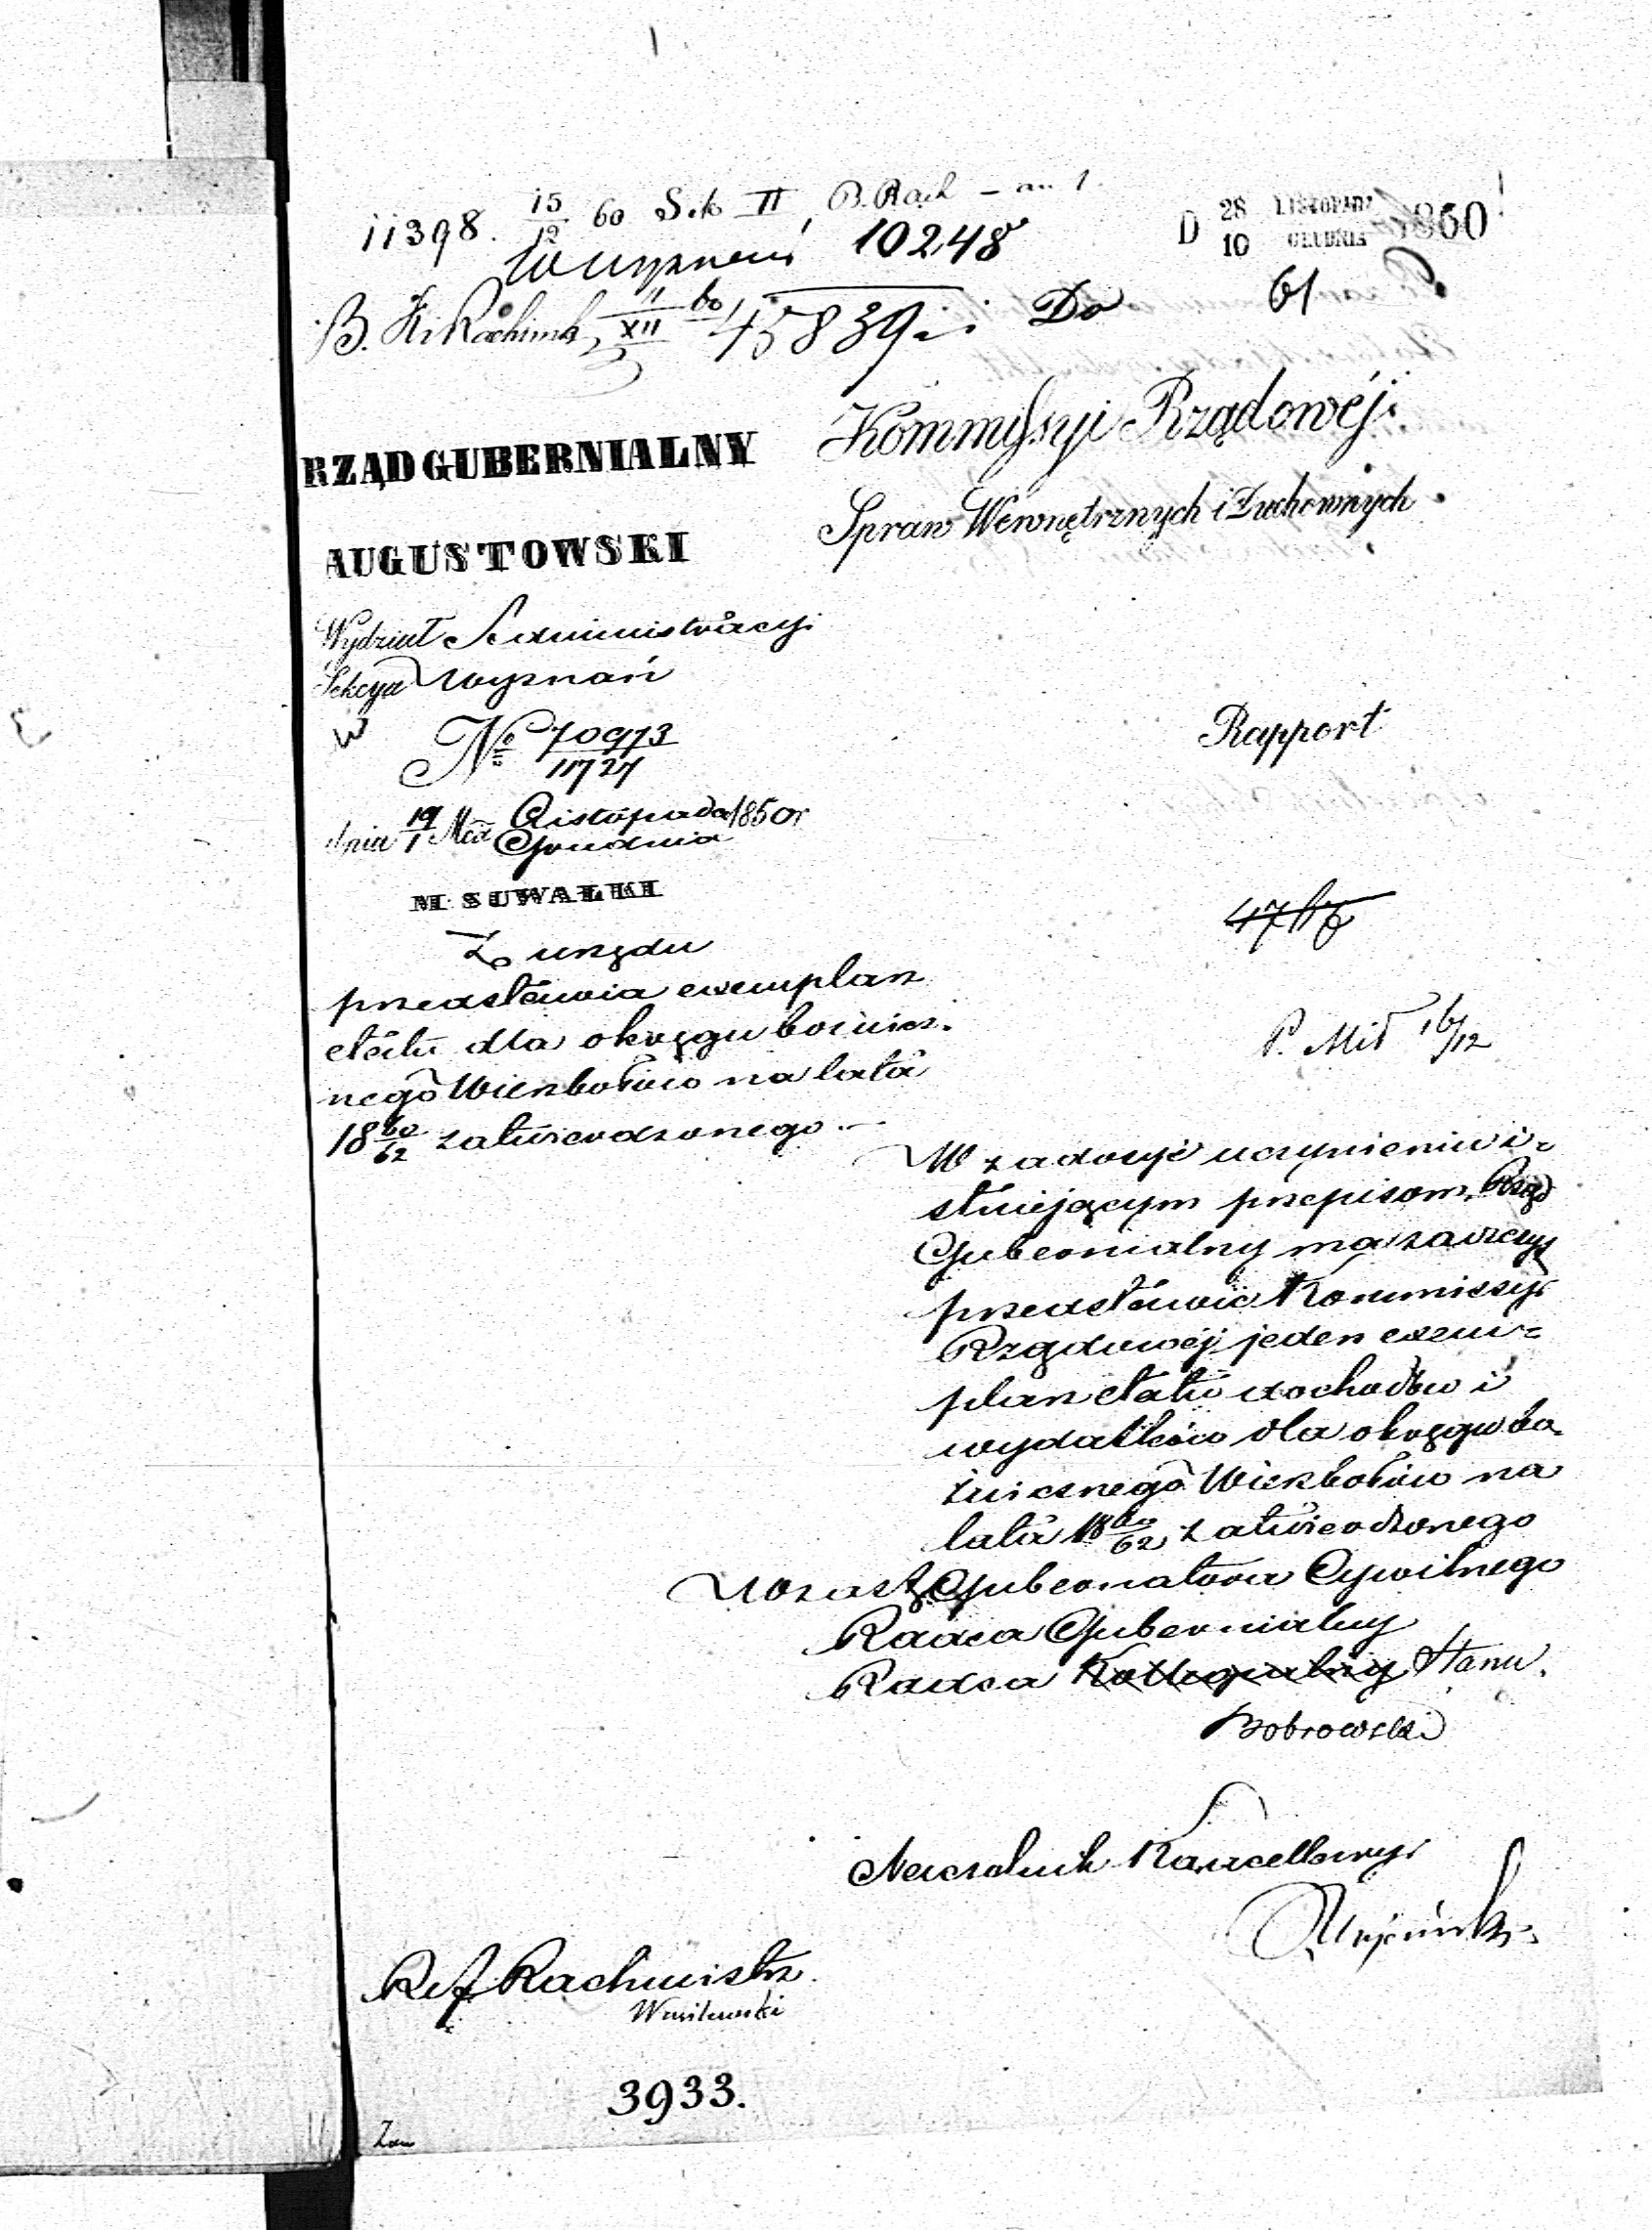 11398. 15/12 60 Sek II B. Rach – an 1.
Wyznań 10248
D 28/10 LISTOPADA/GRUDNIA 1860
B. XII 11/XII 60 45839
Do
61
Kommyssyi Rządowéj
Spraw Wewnętrznych i Duchownych
RZĄD GUBERNIALNY
AUGUSTOWSKI
Wydział Administracyi
Sekcya Wyznań
W
№ 70973/11727
dnia 19/1 Mca Listopada/Grudnia 1860r
M. SUWAŁKI
Rapport
Z urzędu
przedstawia exemplarz
etatu dla okręgu bóżnicz-
nego Wierzbołów na lata
18 60/62 zatwierdzonego.—
P. Mił 16/12
W zadosyć uczynieniu i=
stniejącym przepisom, Rząd
Gubernialny ma zaszczyt
przedstawić Kommissyi
Rządowéj jeden exem=
plarz etatu dochodów i
wydatków dla okręgu bó-
żnicznego Wierzbołów na
lata 18 60/62 zatwierdzonego
w zast. Gubernatora Cywilnego
Radca Gubernialny
Radca Kollegialny Stanu.
Bobrowski
Naczelnik Kancellaryi
Ref. Rachmistrz
Wasilewski
3933.